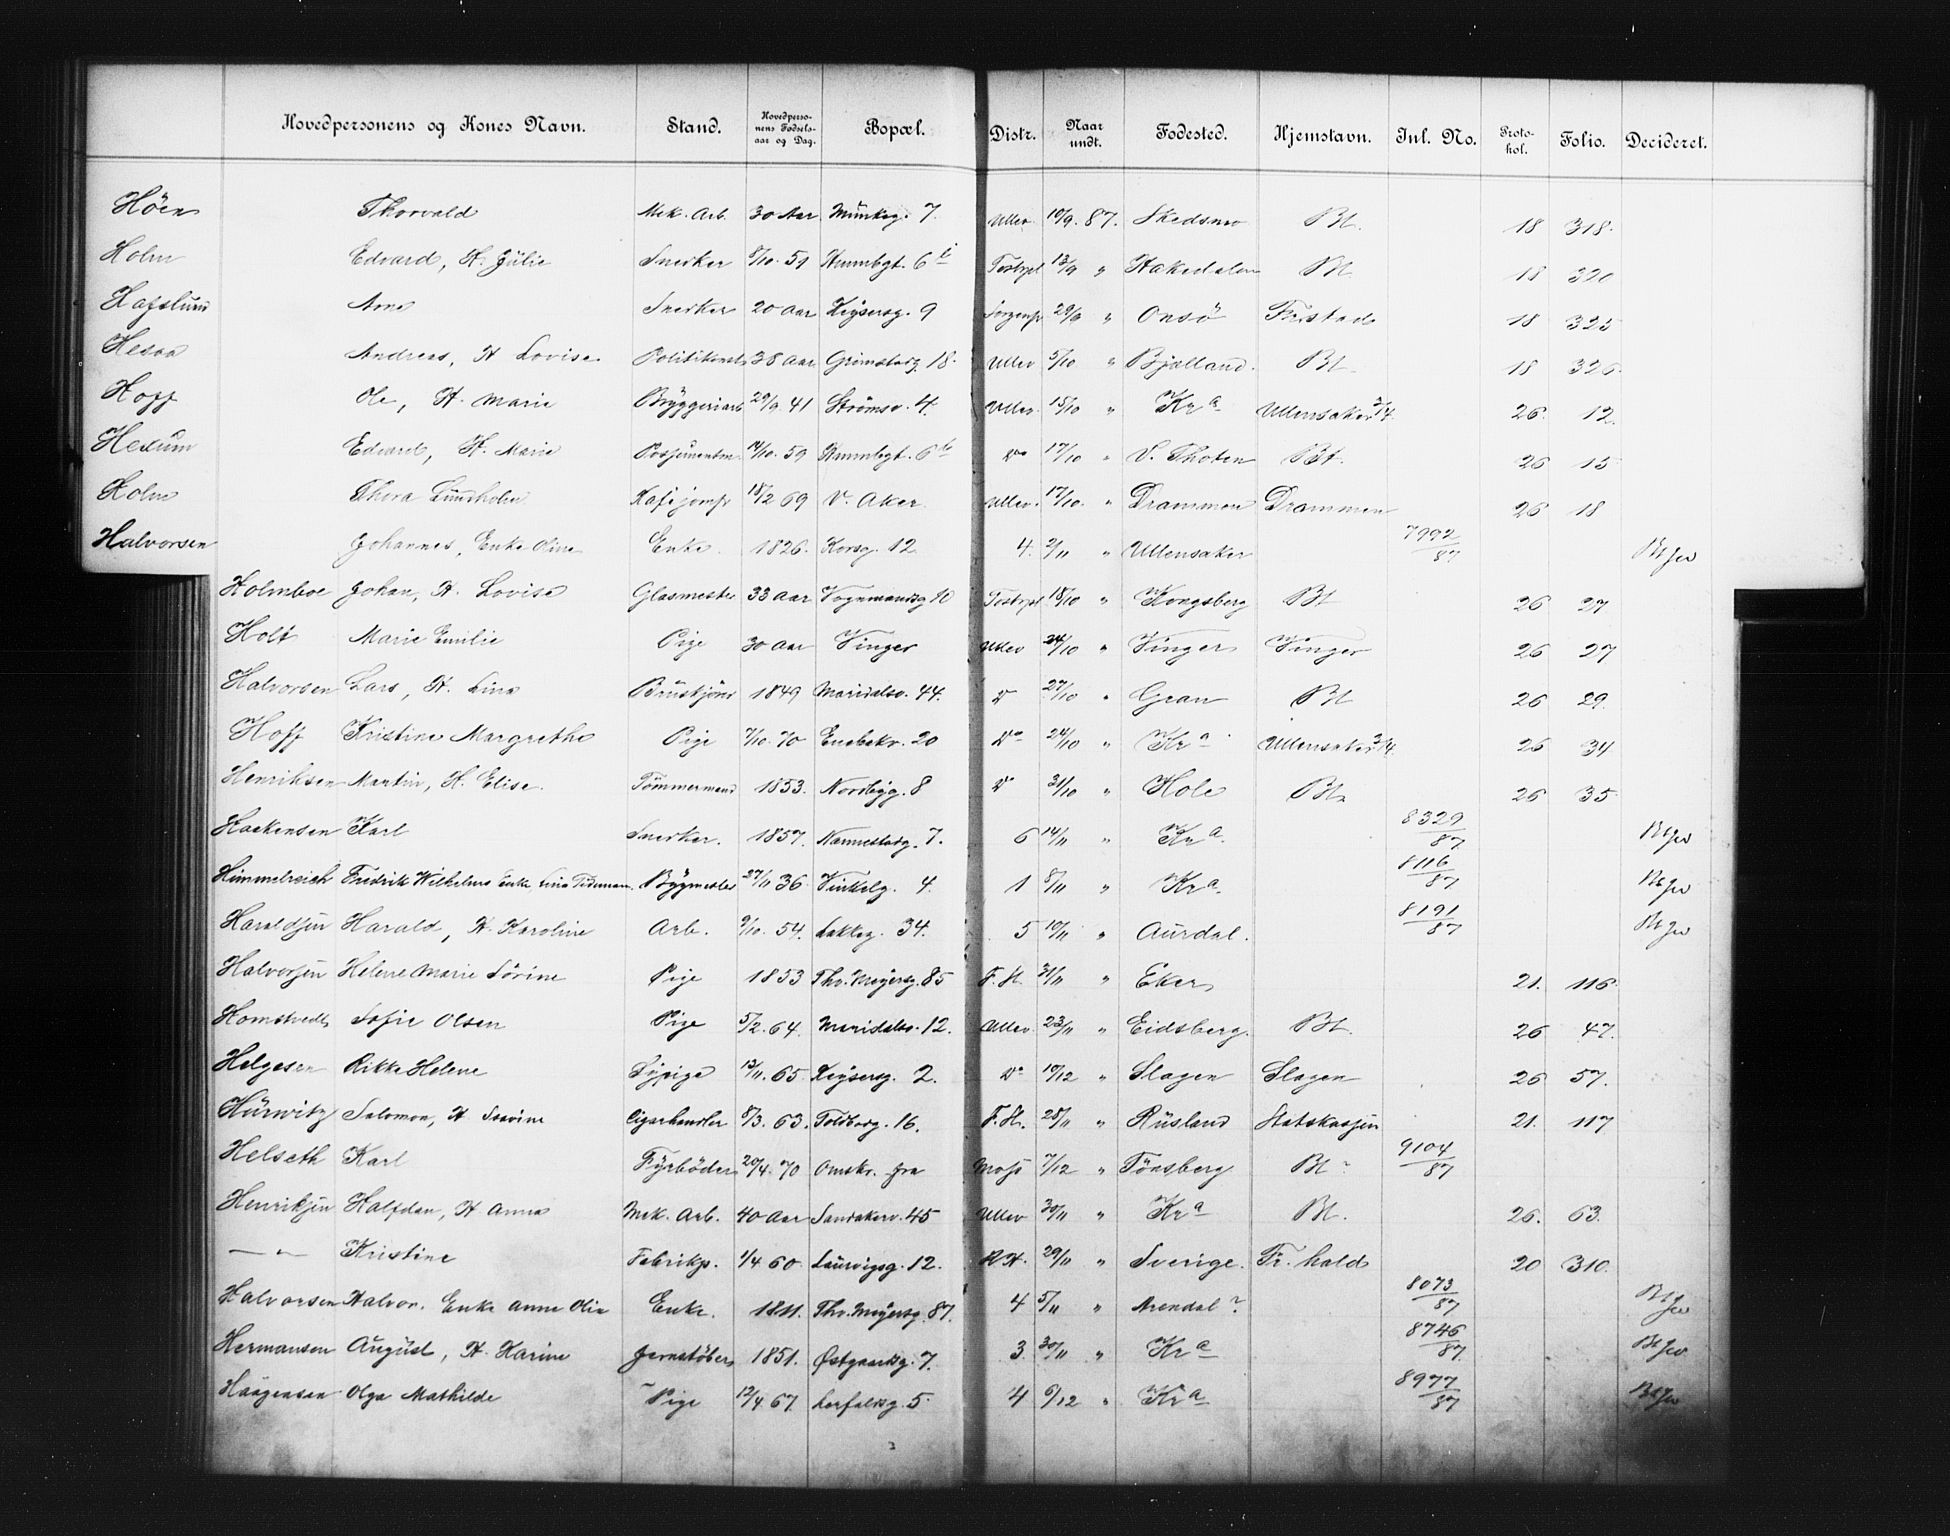 Hovedpersonens og Kones Navn. Stand. Hovedpersonens Fødselsaar og Dag. Bopæl. Distr. Naar undt. Fødested. Hjemstavn. Inl. No. Protokol. Folio. Decideret.
Høen Thorvald Mek. Arb. 30 Aar Munkeg. 7. Ullev. 10/9. 87. Skedsmo Bt. 18 318.
Holm Edvard, H. Julie Snedker 8/10. 51 6 b Tostrpl 13/9 " Hakedalen Bt 18 320
Hafslund Arne Snedker 20 Aar Keysersg. 9 Sorgenfr 29/9 " Onsø Frstad 18 325
Andreas, H Lovise Politikonst 38 Aar Grimstadg 18. Ullev 5/10 " Bjelland. Bt. 18 326.
Hoff Ole, H. Marie Bryggeriarb 29/9. 41 Strømsv. 4. Ullev. 15/10 " Kra Ullensaker 3/4. 26. 12.
Hexum Edvard, H. Marie 14/10. 59 6 b Do 17/10 " V. Thoten Bt. 26 15
Holm Thora Lundholm Kafejomfr 18/2 69 V. Aker. Ullev. 17/10. " Drammen Drammen 26 18
Halvorsen Johannes, Enke Oline Enke. 1826. Korsg. 12. 4. 2/11 " Ullensaker 7992/87
Holmboe Johan, H. Lovise Glasmester 33 Aar Vognmandsg 10 Tostrpl 18/10 " Kongsberg Bt 26 27
Holt Marie Emilie Pige 30 Aar Vinger Ullev 24/10 " Vinger Vinger 26 27
Halvorsen Lars, H. Lina 1849 Maridalsv. 44. D 27/10 " Gran Bt 26 29.
Hoff Kristine Margrethe Pige 7/10. 70 Enebakv. 20 Do 24/10 " Kra Ullensaker 3/4. 26 34
Henriksen Martin, H. Elise. Tømmermand 1853. Nordbyg. 8 Do 31/10 " Hole Bt. 26 35.
Haakensen Karl Snedker. 1857. Nannestadg. 7. 6 14/11 " Kra. 8329/87
Himmelreich Fredrik Wilhelms Enke Lina Tidemann. Bygmester 27/11 36. Vinkelg. 4. 1 8/11 " Kra 8116/87
Haraldsen Harald, H. Karoline Arb. 9/10. 54. Lakkeg. 34. 5 10/11 " Aurdal. 8191/87
Halvorsen Helene Marie Sørine Pige 1853 Thv. Meyersg. 85 F. St. 21/11 " Eker 21. 116.
Homstvedt Sofie Olsen Pige 5/2. 64. Maridalsv. 12. Ullev. 23/11 " Eidsberg. Bt. 26 47.
Helgesen Rikke Helene Sypige 13/11. 65. Keysersg. 2. Do 10/12 " Slagen Slagen 26 57.
Hurwitz Salomon, H Cigarhandler 8/3. 63. Toldbodg. 16. F. St. 28/11 " Rusland Statskassen 21. 117
Helseth Karl Fyrbøder 20/4. 70 Omstr. fra Moss 7/12 " Tønsberg Bt ? 9104/87
Henriksen Halfdan, H Anna Mek. Arb. 40 Aar Sandakerv. 45 Ullev 30/11 " Kra Bt. 26. 63.
— " — Kristine Fabrikp. 1/4 60. Laurvigsg. 12. R H. 29/11 " Sverige. Fr. hald 20 310.
Halvorsen Halvor. Enke Anne Olia Enke. 1811. Thv. Meyersg. 87. 4 5/11 " Arendal ? 8073/87
Hermansen August, H. Karine Jernstøber 1851. Østgaardsg. 7. 3. 30/11 " Kra 8746/87
Haagensen Olga Mathilde Pige 12/4 67. Lerfaldsg. 5. 4 6/12 " Kra 8977/87